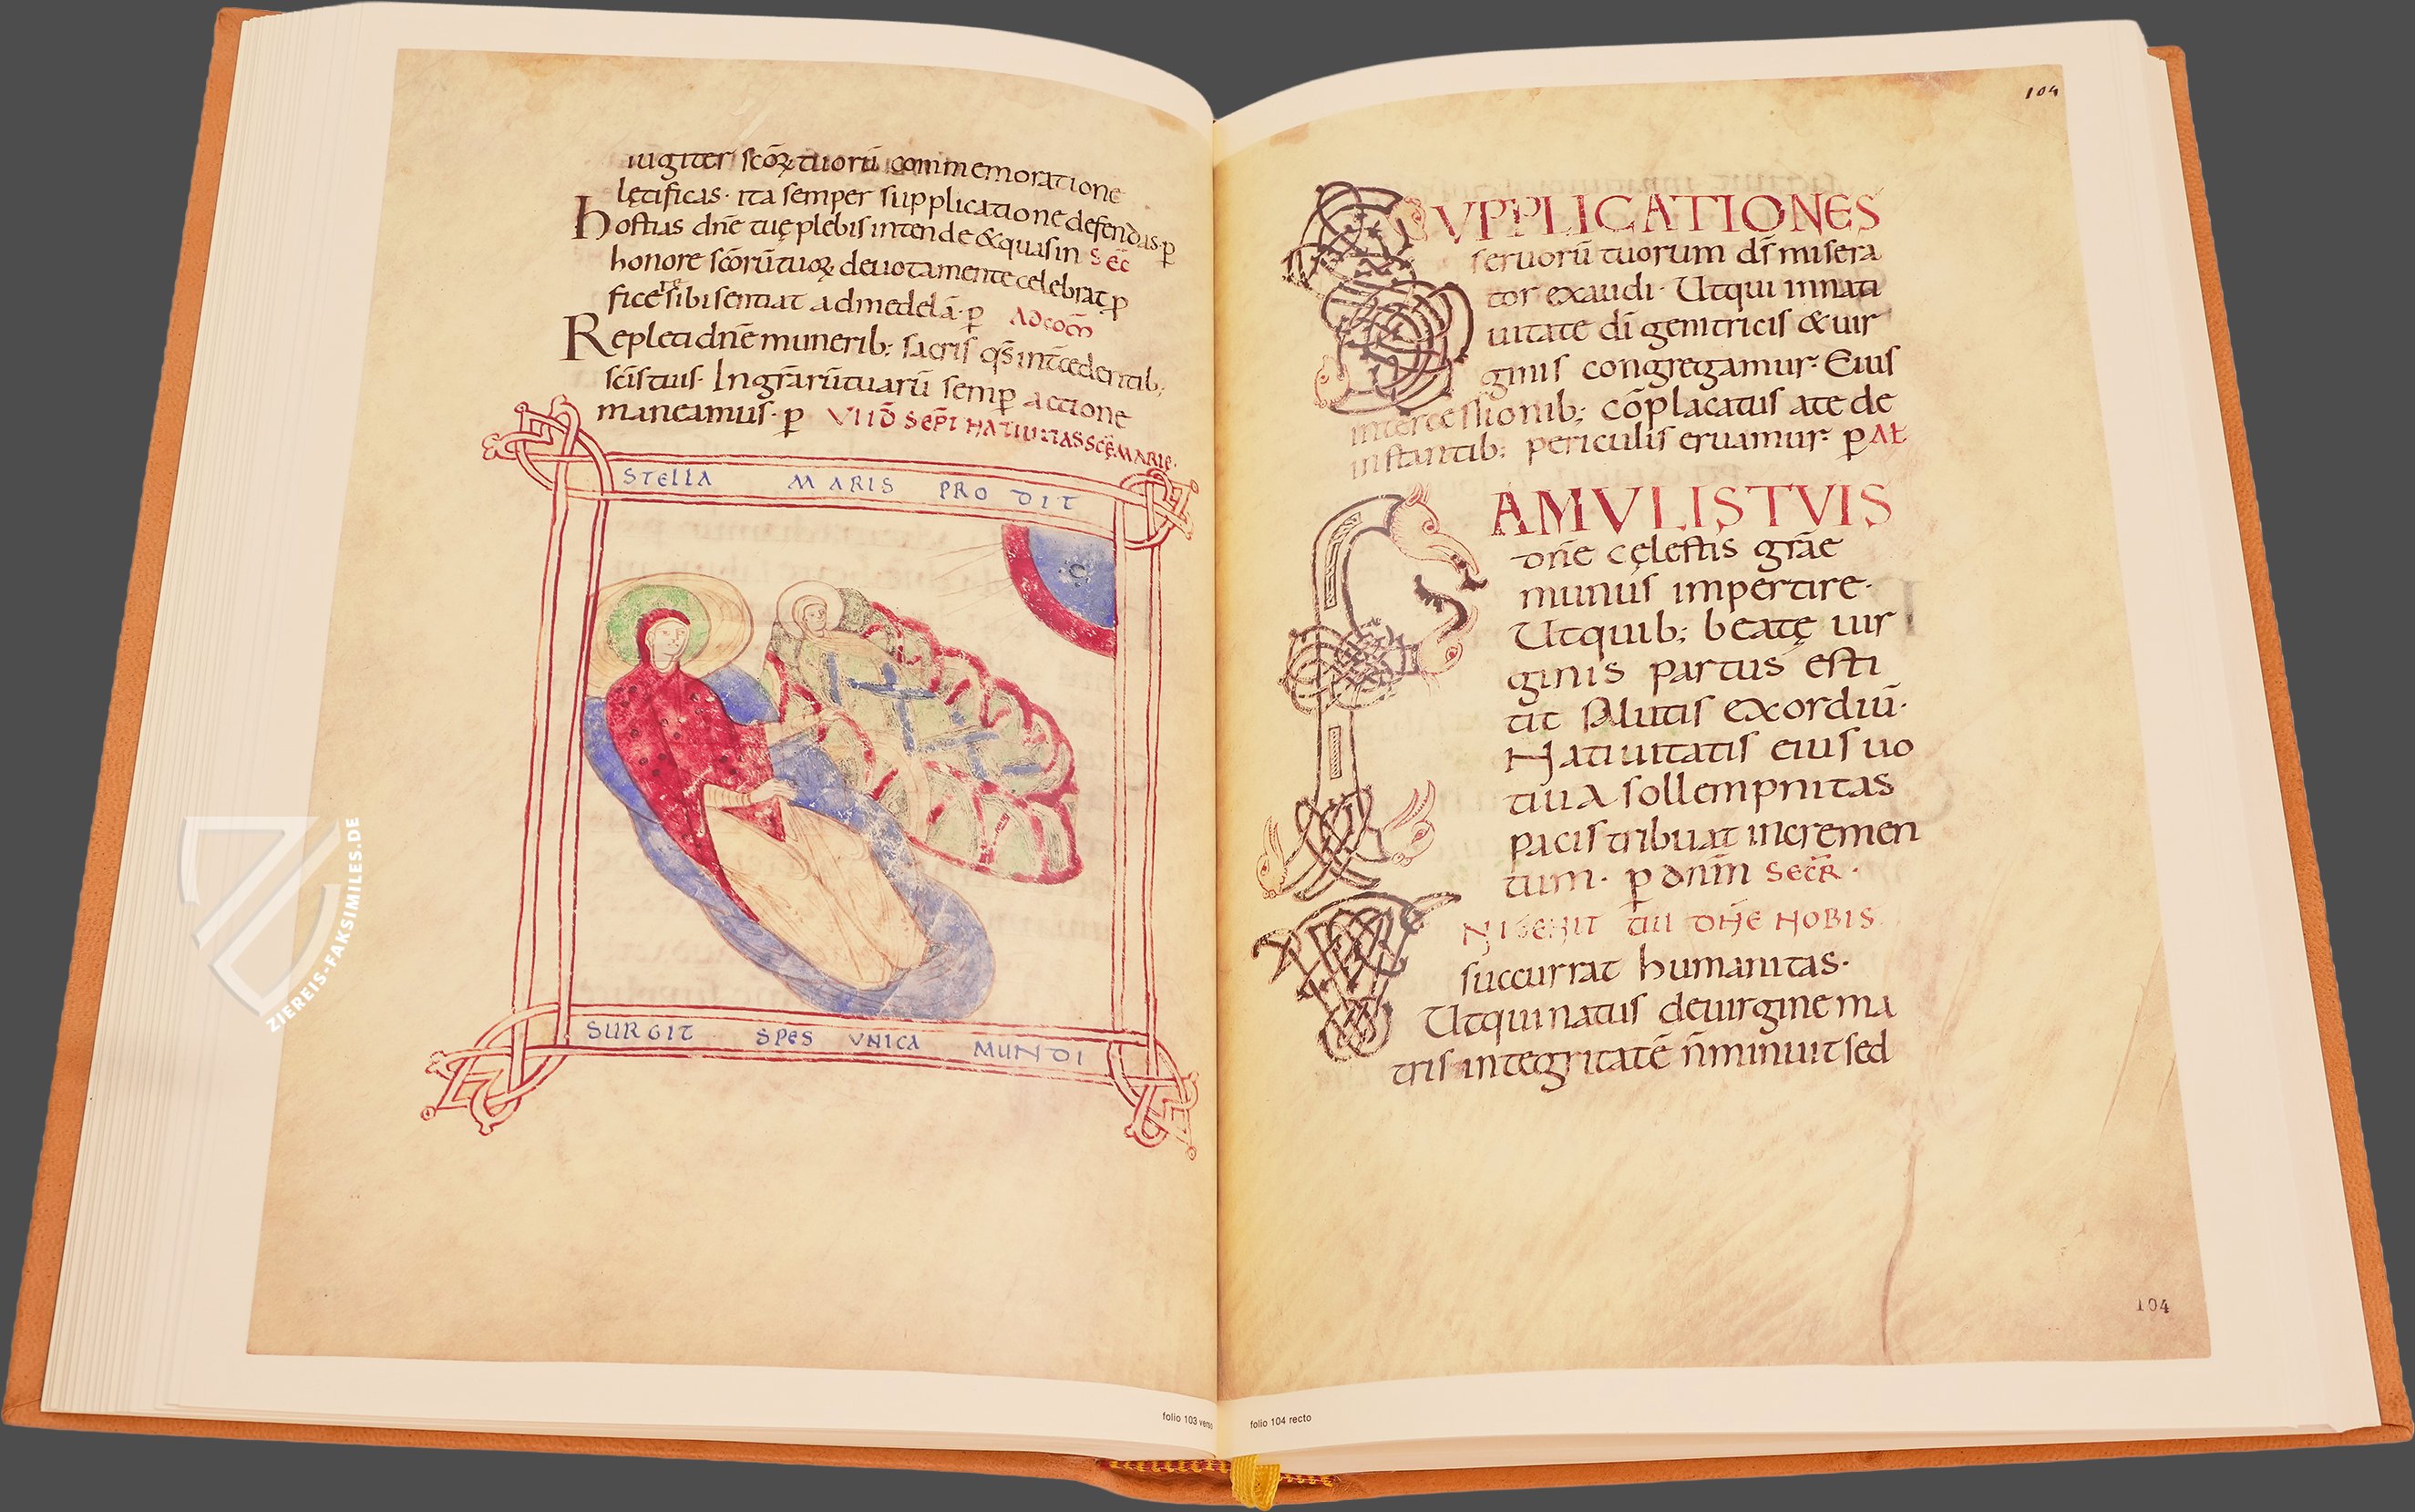 iugiter scōꝝ tuorū commemoratione
lętificas· ita semper supplicatione defendas· ꝑ
hostias dn̄e tuę plebis intende & quas in SEC̄
honore scōrū tuoꝝ deuota mente celebrat ꝓ
ficere sibi sentiat ad medelā· ꝑ AD COM̄
Repleti dn̄e munerib; sacris qs̄ int̄cedentib;
scīs tuis· In gr̄arū tuarū semꝑ actione
maneamus· ꝑ VI ID SEPT NATIUITAS SCĘ MARIE·
STELLA MARIS PRODIT
SURGIT SPES VNICA MUNDI
ZIEREIS-FAKSIMILES.DE
folio 103 verso
104
SVPPLICATIONES
seruorū tuorum ds̄ misera
tor exaudi· Ut qui in nati
uitate dī genitricis & uir
ginis congregamur· Eius
intercessionib; cōplacatus a te de
instantib; periculis eruamur· ꝑ AL
FAMVLIS TVIS
dn̄e cęlestis gr̄ae
munus impertire·
Ut quib; beatę uir
ginis partus esti
tit salutis exordiū·
Natiuitatis eius uo
tiua sollempnitas
pacis tribuat incremen
tum· ꝑ dnm̄ SECR̄·
VNIGENITI TUI DN̄E NOBIS
succurrat humanitas·
Ut qui natus de uirgine ma
tris integritatē n̄ minuit sed
104
folio 104 recto